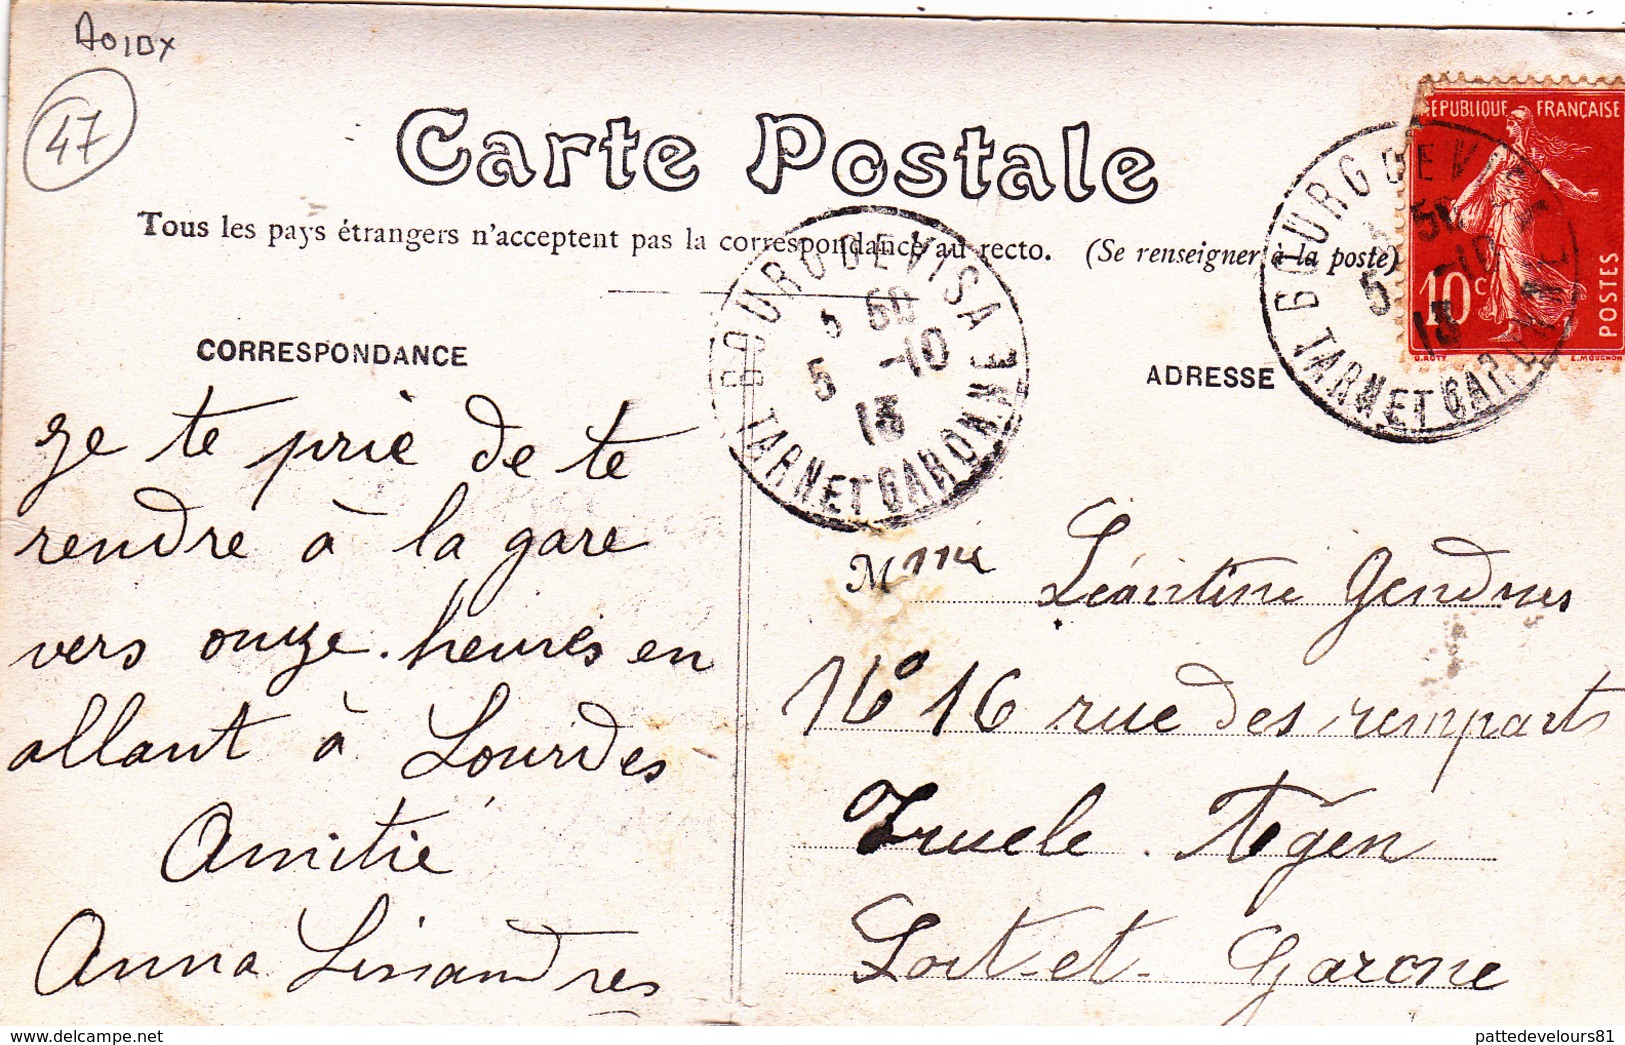 A01DX
47
Carte Postale
Tous les pays étrangers n'acceptent pas la correspondance au recto. (Se renseigner à la poste)
REPUBLIQUE FRANÇAISE
10c
POSTES
O. ROTY
E. MOUCHON
BOURG DE VISA
50
5 -10
13
TARN ET GARONNE
BOURG DE VISA
3 50
5 -10
13
TARN ET GARONNE
CORRESPONDANCE
ADRESSE
Je te prie de te
rendre à la gare
vers onze. heures en
allant à Lourdes
Amitié
Anna
Mme Léontine
No 16 rue des remparts
Agen
Lot-et-Garonne
pattedevelours81